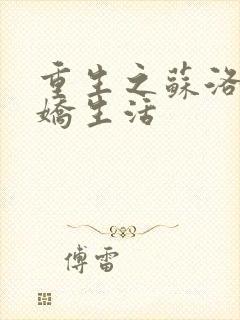 重生之蘇洛
嬌生活
傅雷